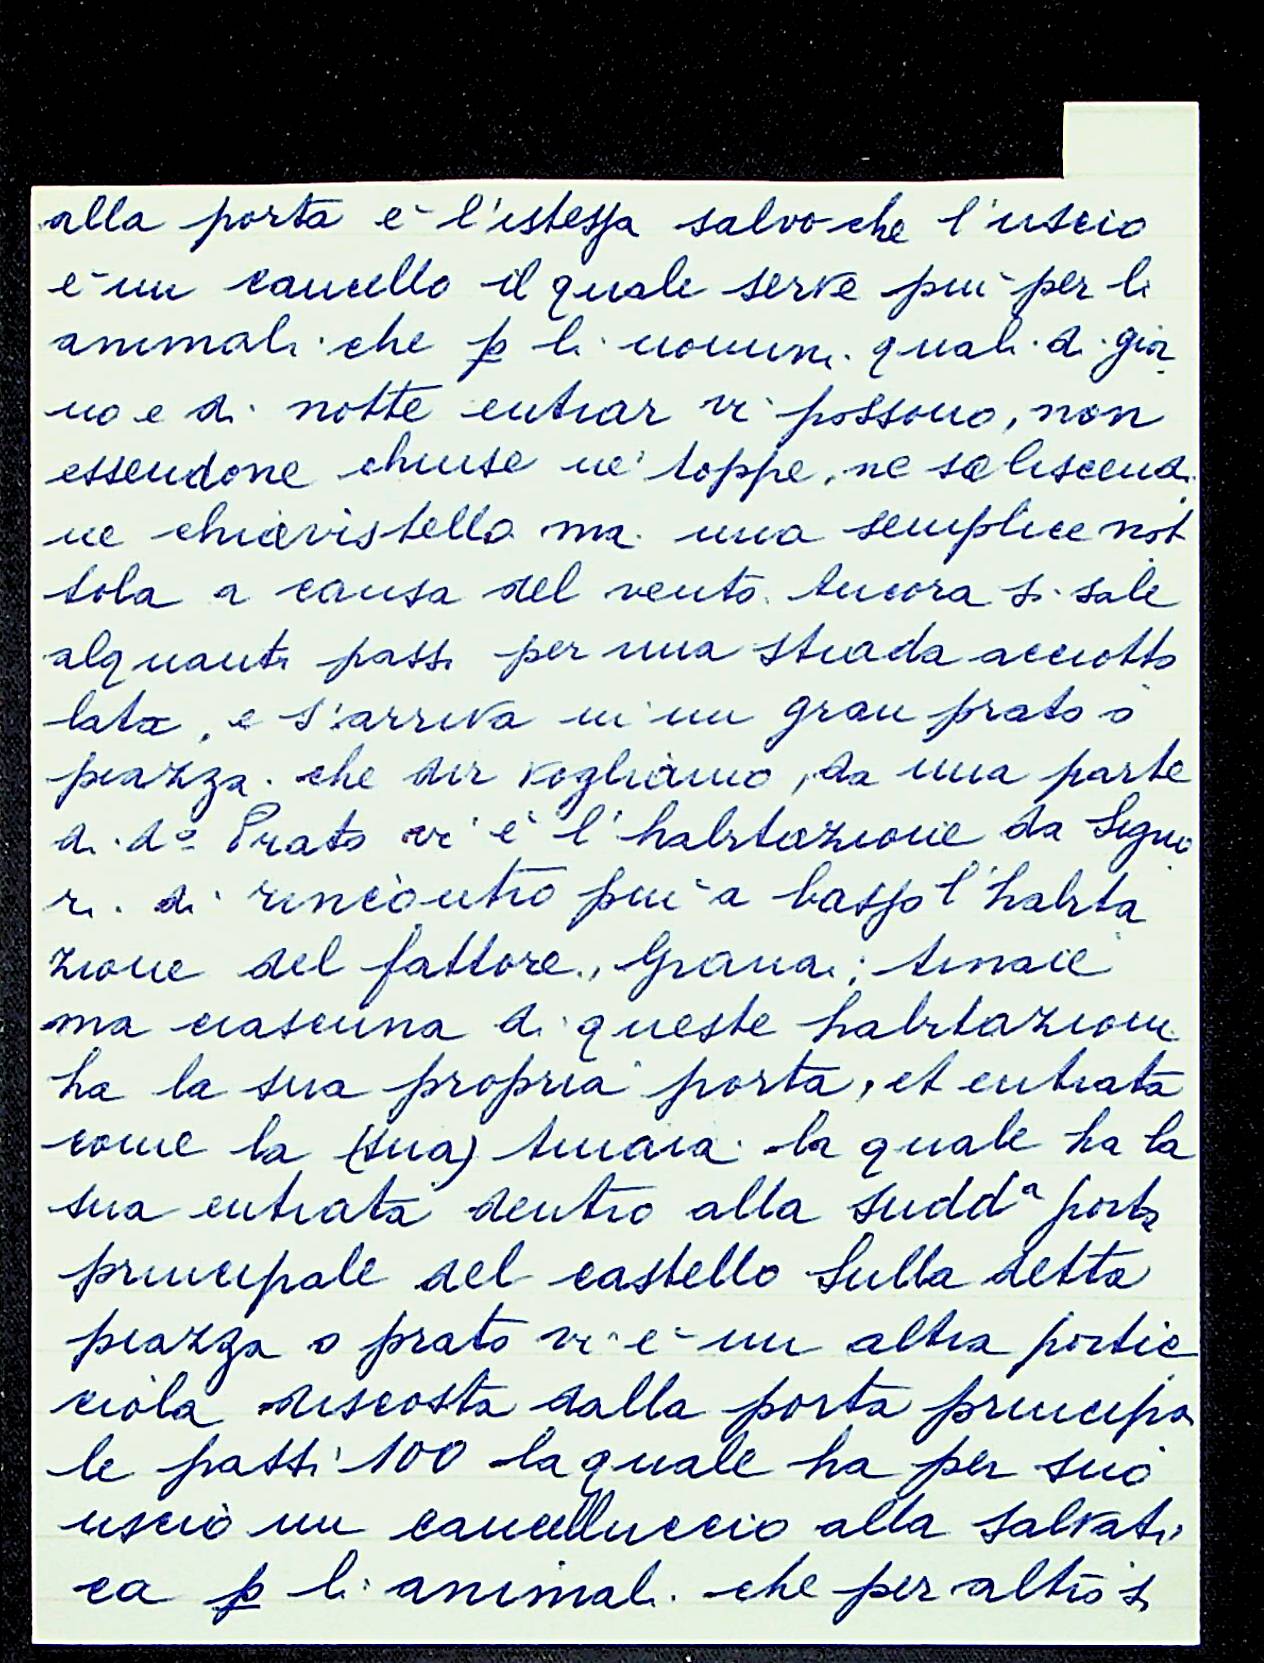 alla porta è l'istessa salvo che l'uscio
è un cancello il quale serve più per li
animali che p li uomini quali di gior
no e di notte entrar vi possono, non
essendone chiuse né toppe, ne saliscendi
ne chiavistello ma una semplice not
tola a causa del vento. Ancora si sale
alquanti passi per una strada acciotto
lata, e s'arriva in un gran prato o
piazza che dir vogliamo, da una parte
di do Prato vi è l'habitazione da Signo
ri. di rincontro più a basso l'habita
zione del fattore, Granai; tinaie
ma ciascuna di queste habitazioni
ha la sua propria porta, et entrata
come la (sua) tinaia la quale ha la
sua entrata dentro alla sudda porta
principale del castello Sulla detta
piazza o prato vi è un altra portic
ciola discosta dalla porta principa
le passi 100 la quale ha per suo
uscio un cancelluccio alla salvati
ca p li animali che per altro si